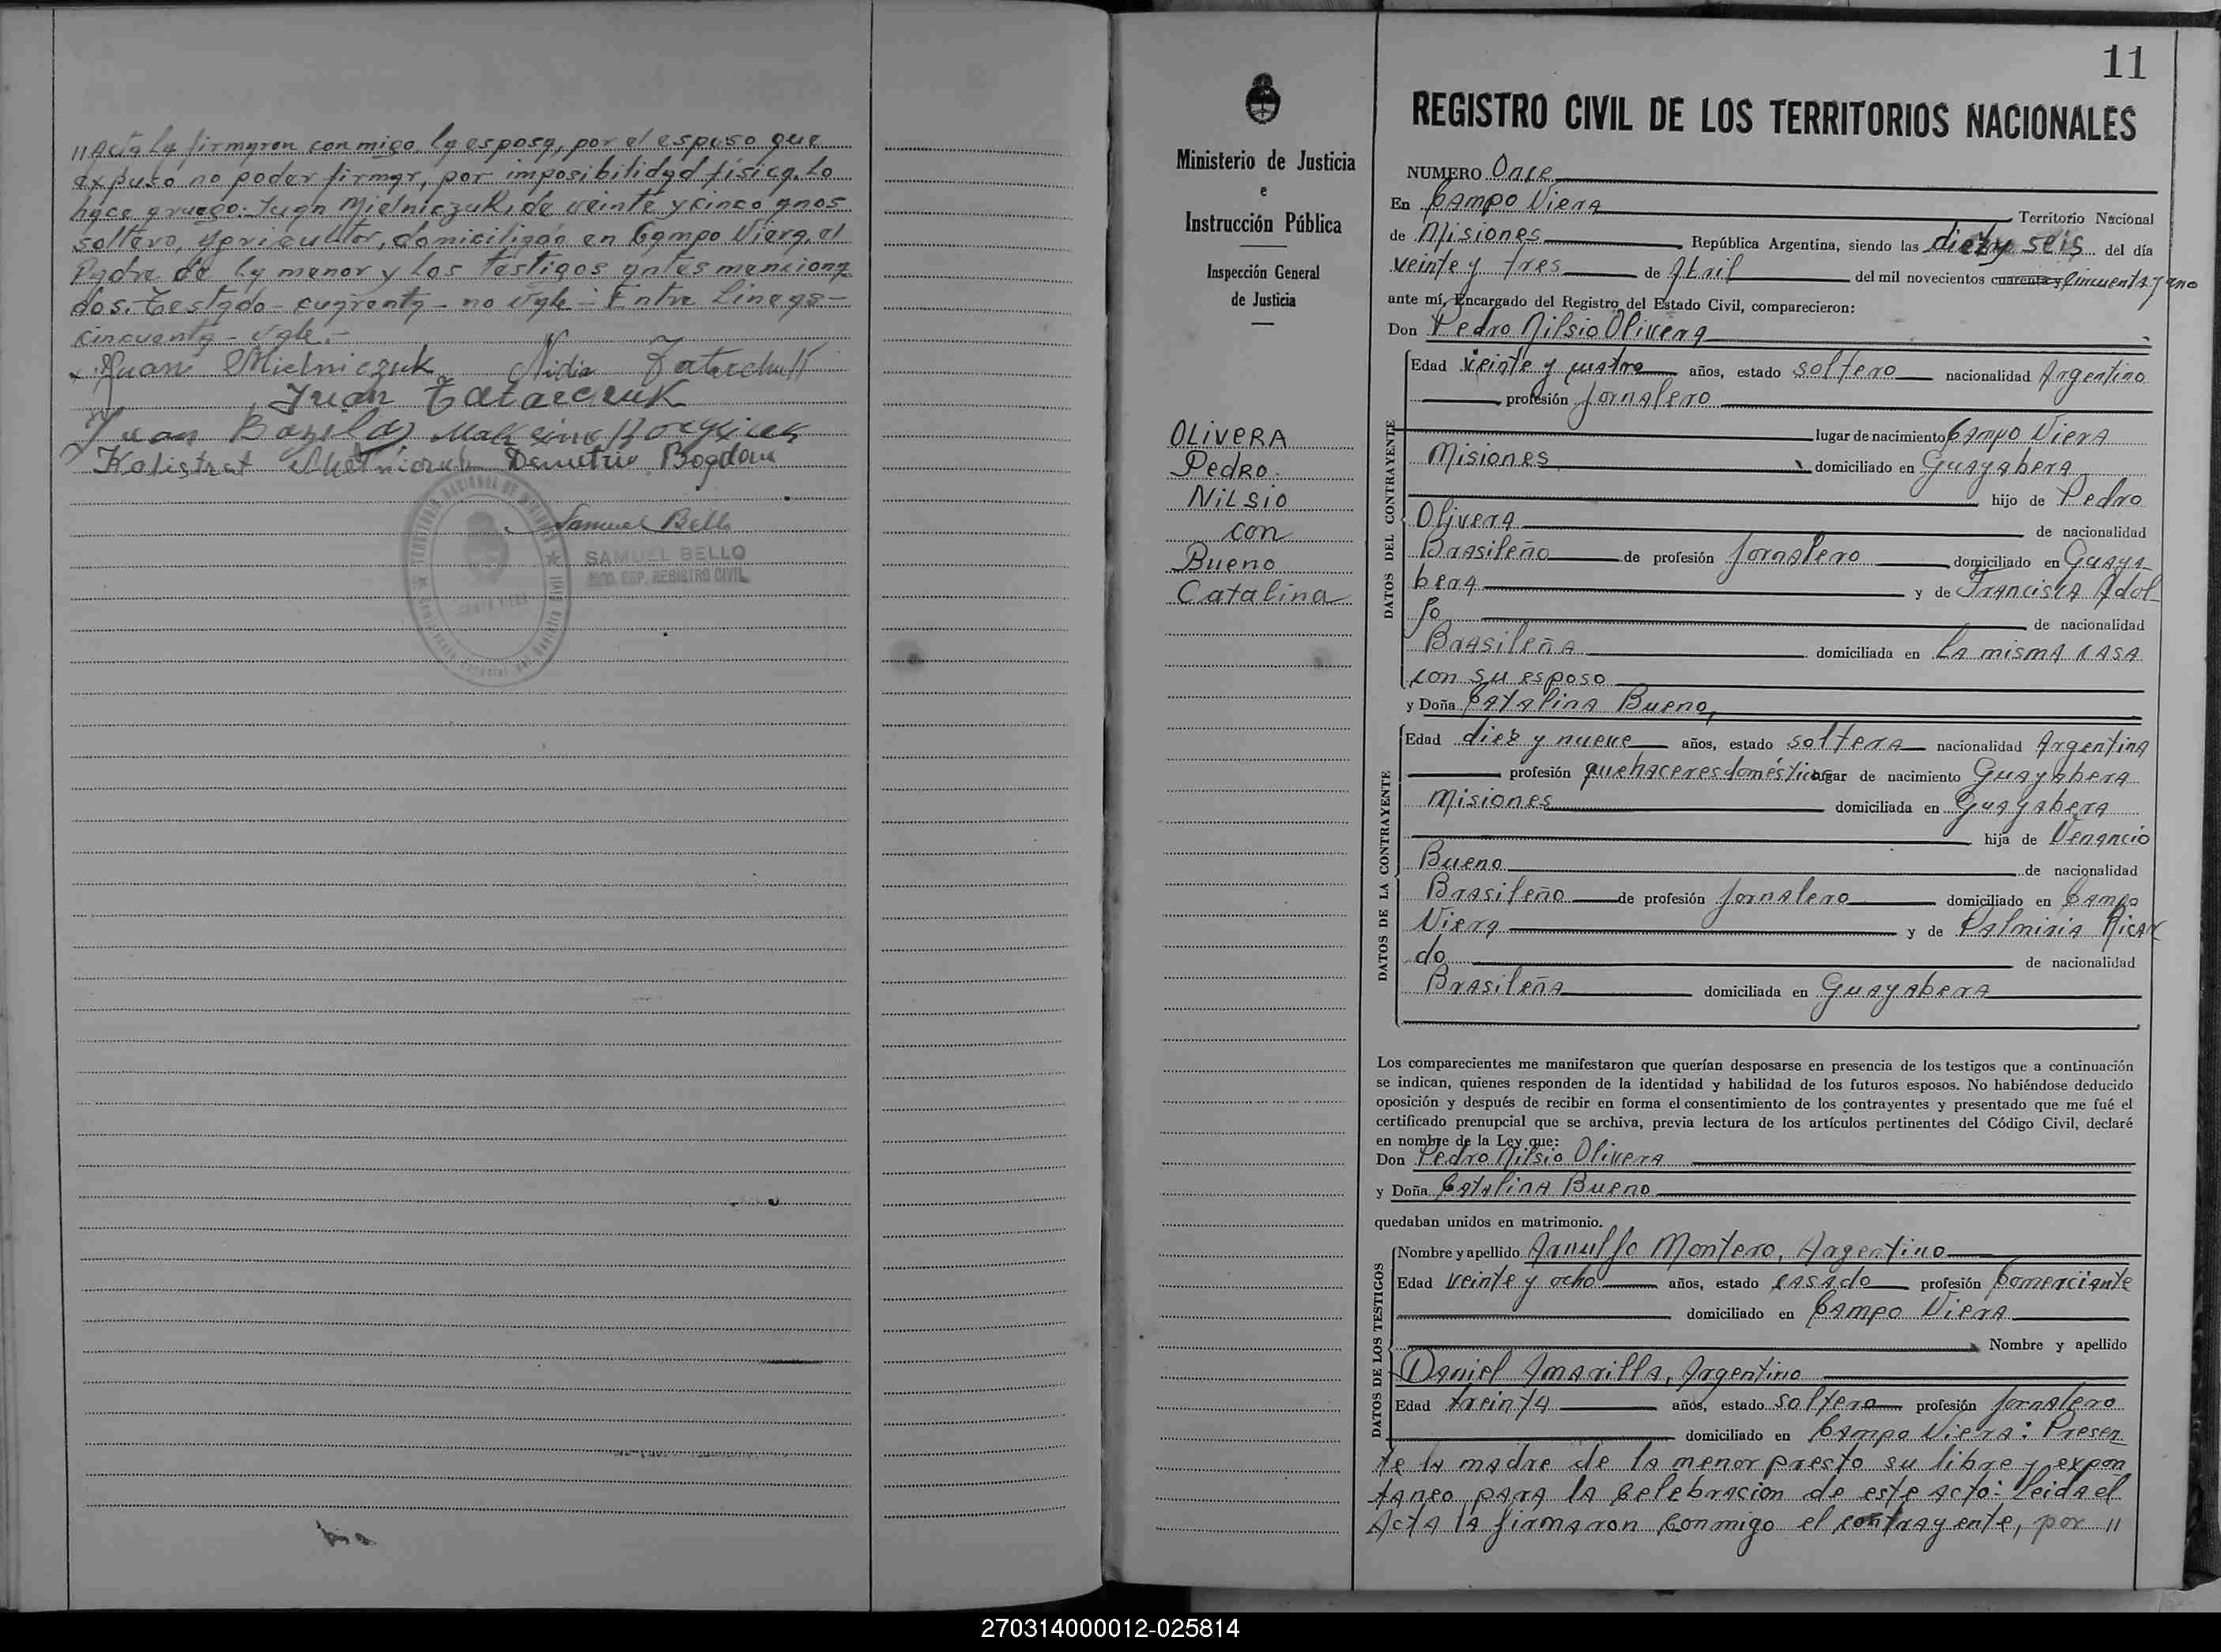 // Acta la firmaron conmigo la esposa, por el esposo que
expuso no poder firmar, por imposibilidad física. Lo
hace a ruego: Juan Mielniczuk, de veinte y cinco anos
soltero, Agricultor, domiciliado en Campo Viera, el
Padre de la menor y los testigos antes menciona
dos. Testado - cuarenta - no vale - Entre Lineas -
cincuenta - vale.-
Juan Mielniczuk Nidia Tatarchuk
Juan Tatarczuk
Juan
Kalistrat Demetrio Bogdan
Samuel Bello
SAMUEL BELLO
ENC. ESP. REGISTRO CIVIL
11
Ministerio de Justicia
e
Instrucción Pública
Inspección General
de Justicia
OLIVERA
Pedro
NILSIO
con
Bueno
Catalina
REGISTRO CIVIL DE LOS TERRITORIOS NACIONALES
NUMERO Once
En Campo Viera Territorio Nacional
de Misiones República Argentina, siendo las diez y seis del día
veinte y tres de Abril del mil novecientos cuarenta y cincuenta y uno
ante mí, Encargado del Registro del Estado Civil, comparecieron:
Don Pedro Nilsio Olivera
DATOS DEL CONTRAYENTE
Edad veinte y cuatro años, estado soltero nacionalidad Argentino
profesión Jornalero
lugar de nacimiento Campo Viera
Misiones domiciliado en Guayabera
hijo de Pedro
Olivera de nacionalidad
Brasileño de profesión Jornalero domiciliado en Guaya
bera y de Francisca Adol
fo de nacionalidad
Brasileña domiciliada en La misma casa
con su esposo
y Doña Catalina Bueno,
DATOS DE LA CONTRAYENTE
Edad diez y nueve años, estado soltera nacionalidad Argentina
profesión quehaceres domésticos lugar de nacimiento Guayabera
Misiones domiciliada en Guayabera
hija de Venancio
Bueno de nacionalidad
Brasileño de profesión Jornalero domiciliado en Campo
Viera y de Palmiria Ricar
do de nacionalidad
Brasileña domiciliada en Guayabera
Los comparecientes me manifestaron que querían desposarse en presencia de los testigos que a continuación
se indican, quienes responden de la identidad y habilidad de los futuros esposos. No habiéndose deducido
oposición y después de recibir en forma el consentimiento de los contrayentes y presentado que me fué el
certificado prenupcial que se archiva, previa lectura de los artículos pertinentes del Código Civil, declaré
en nombre de la Ley que:
Don Pedro Nilsio Olivera
y Doña Catalina Bueno
quedaban unidos en matrimonio.
DATOS DE LOS TESTIGOS
Nombre y apellido Arnulfo Montero, Argentino
Edad veinte y ocho años, estado casado profesión Comerciante
domiciliado en Campo Viera
Nombre y apellido
Daniel Amarilla, Argentino
Edad treinta años, estado soltero profesión Jornalero
domiciliado en Campo Viera: Presen
te la madre de la menor presto su libre y expon
taneo para la celebracion de este acto: Leida el
Acta la firmaron conmigo el contrayente, por //
270314000012-025814